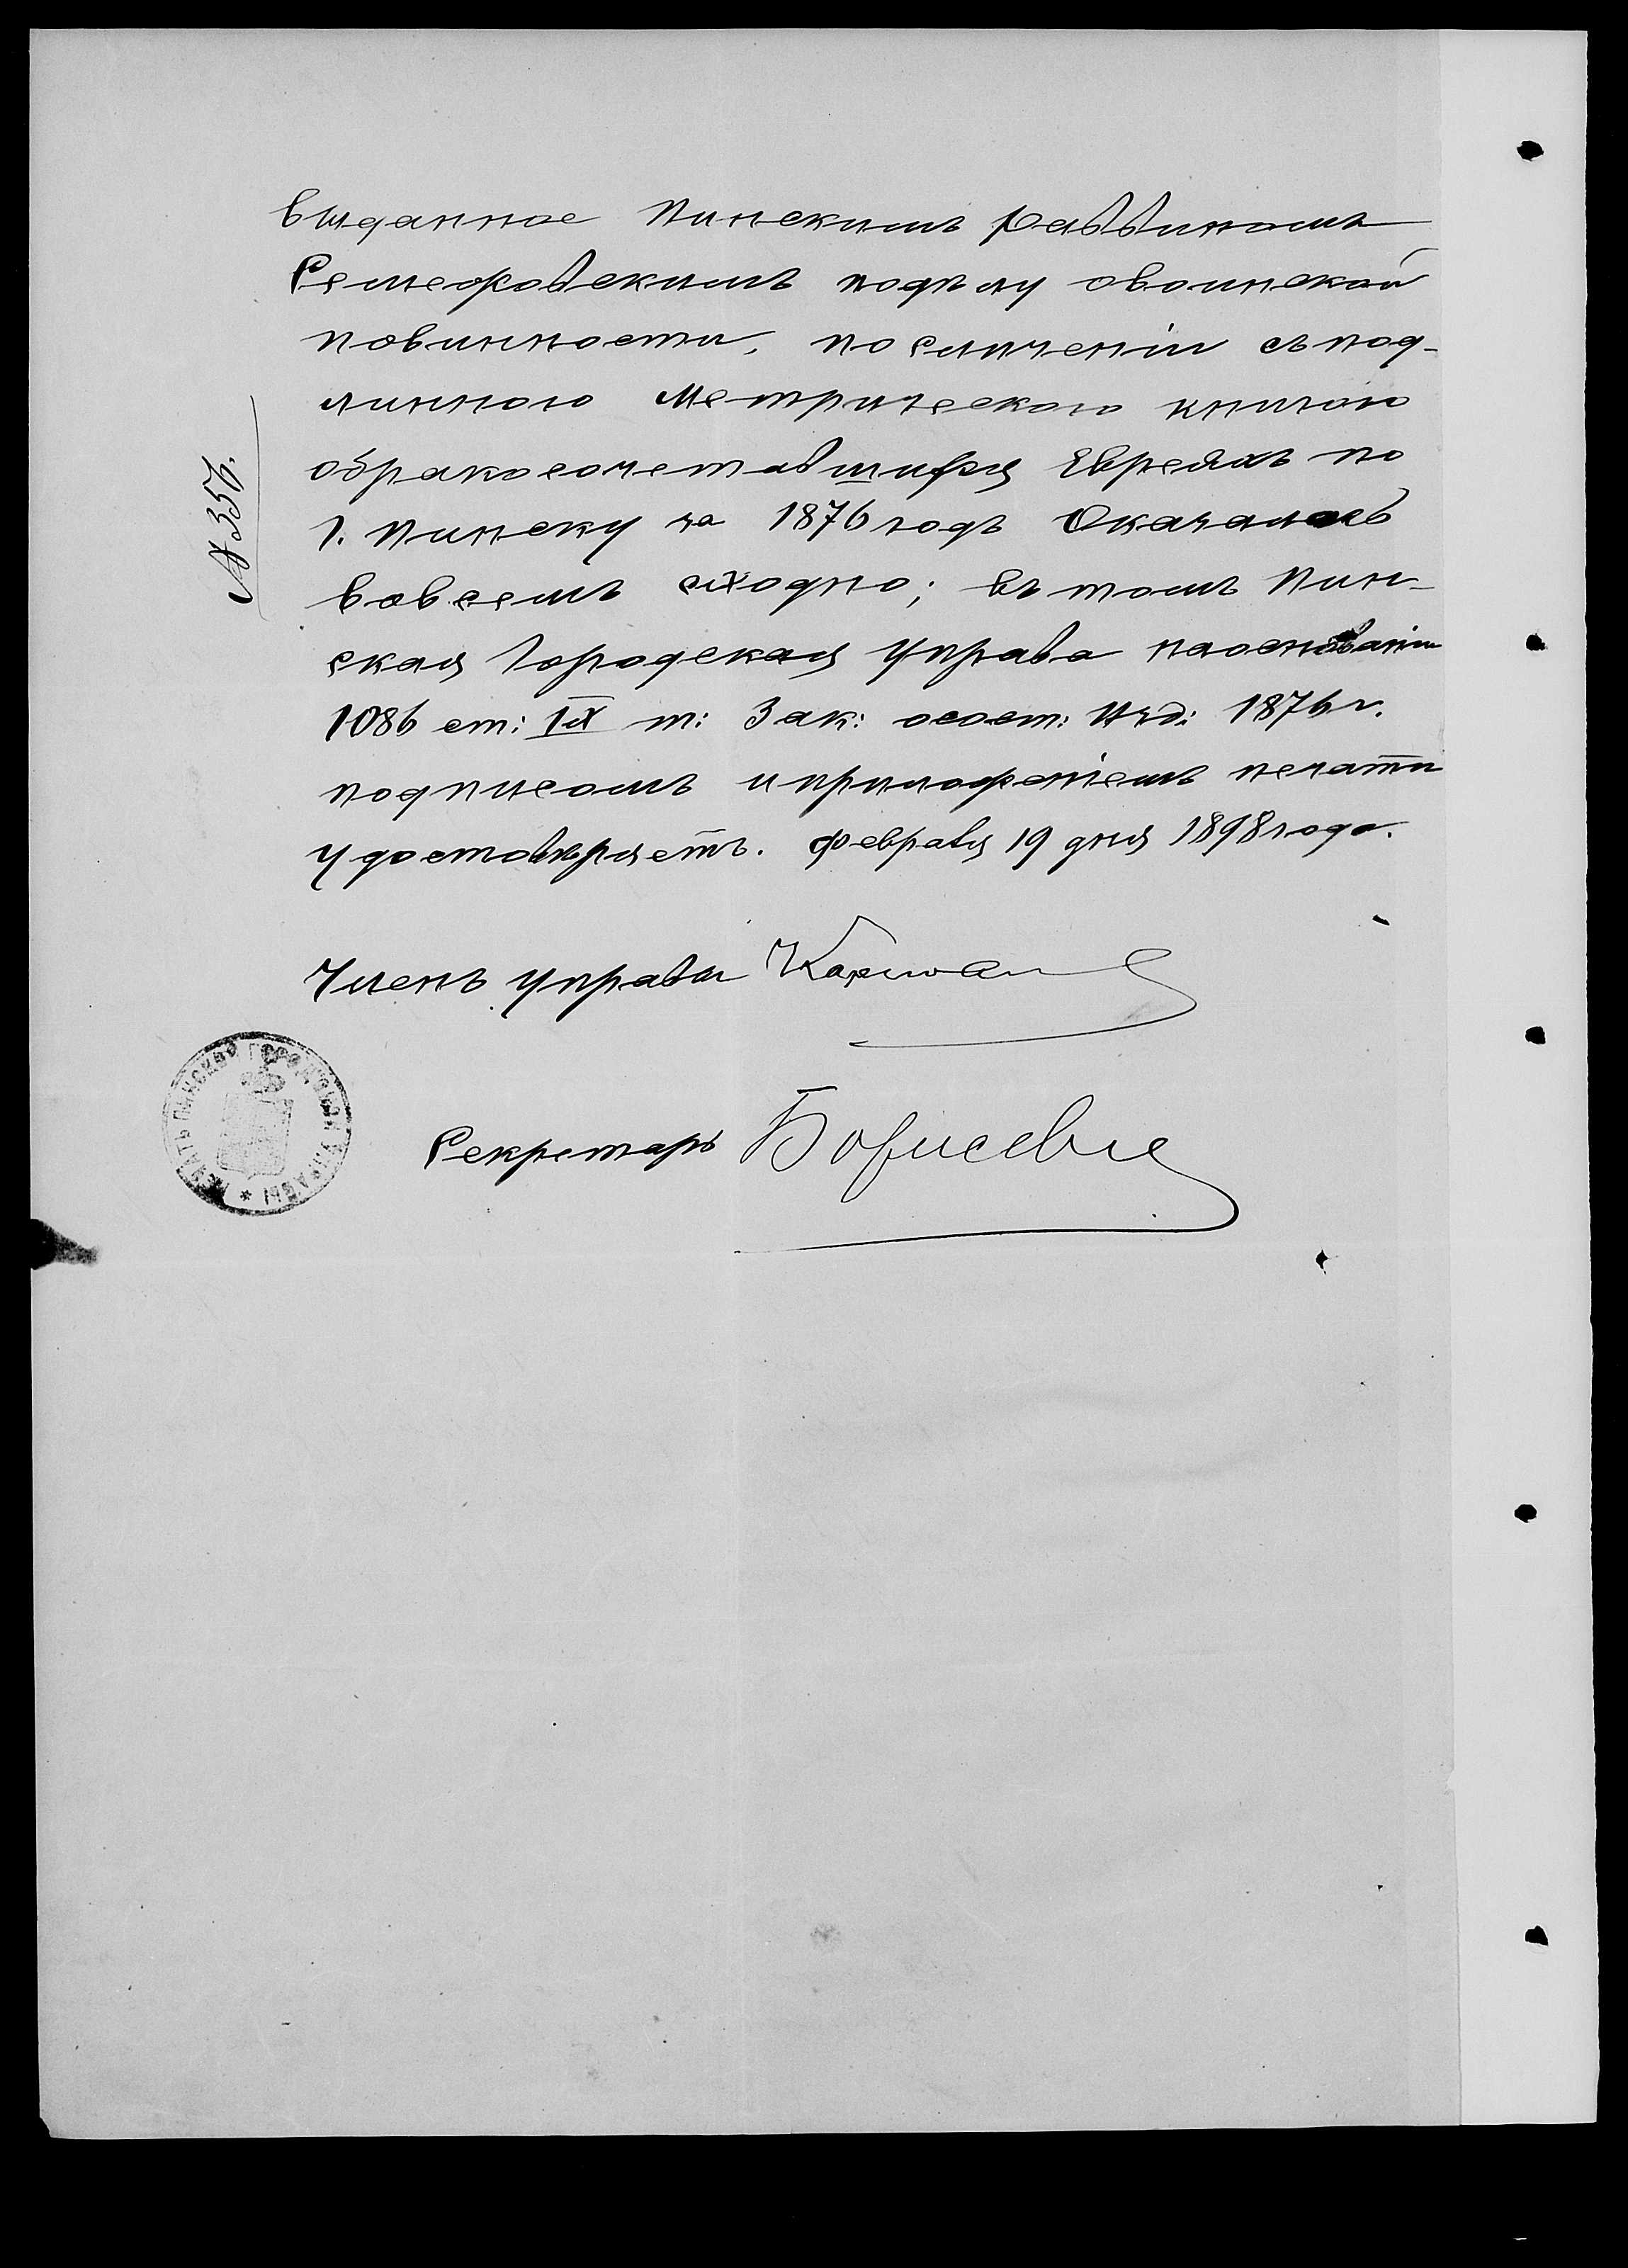 выданное Пинскимъ Раввиномъ
подѣлу овоинской
повинности, по сличеніи съ под-
линною Метрическою книгою
обракосочетавшихся Евреяхъ по
г. Пинску за 1876 годъ Оказалось
вовсемъ сходно; въ томъ Пин-
ская Городская Управа наоснованіи
1086 ст: IX т: Зак: осост: Изд: 1876 г.
подписомъ и приложеніемъ печати
удостовѣряетъ. Февраля 19 дня 1898 года.
№ 357.
Членъ Управы
Секретарь Борисевич
ПЕЧАТЬ ПИНСКОЙ ГОРОДСКОЙ УПРАВЫ *